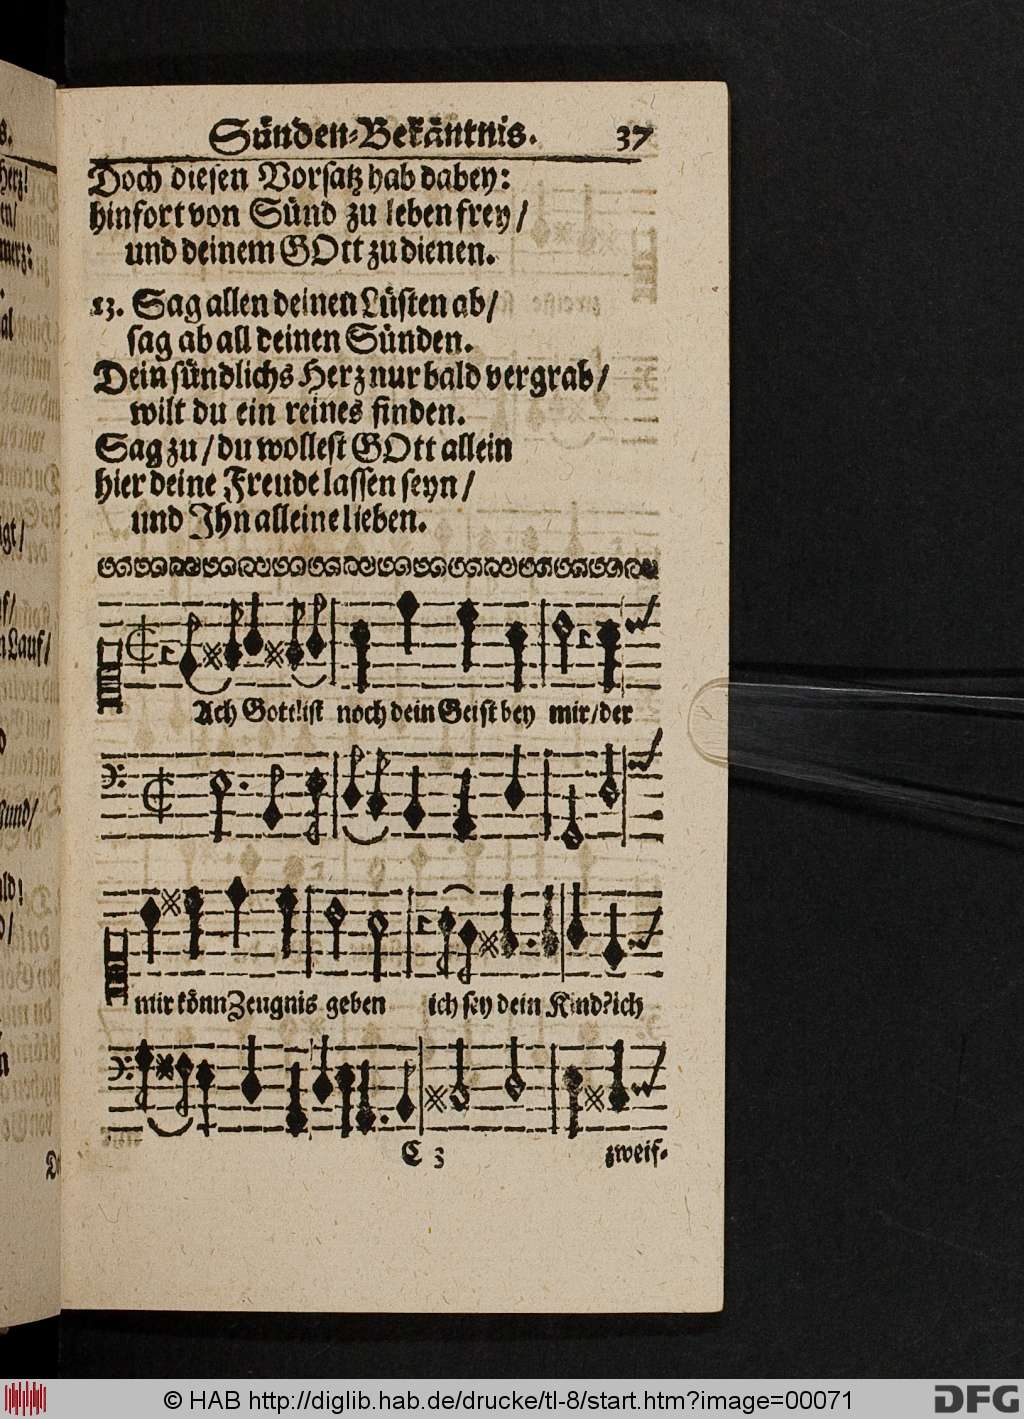 Sünden-Bekäntnis. 37
Doch diesen Vorsatz hab dabey:
hinfort von Sünd zu leben frey /
und deinem GOtt zu dienen.
13. Sag allen deinen Lüsten ab /
sag ab all deinen Sünden.
Dein sündlichs Herz nur bald vergrab /
wilt du ein reines finden.
Sag zu / du wollest GOtt allein
hier deine Freude lassen seyn /
und Jhn alleine lieben.
Ach Gott! ist noch dein Geist bey mir / der
mir könn Zeugnis geben ich sey dein Kind? ich
C 3 zweif-
© HAB http://diglib.hab.de/drucke/tl-8/start.htm?image=00071
DFG